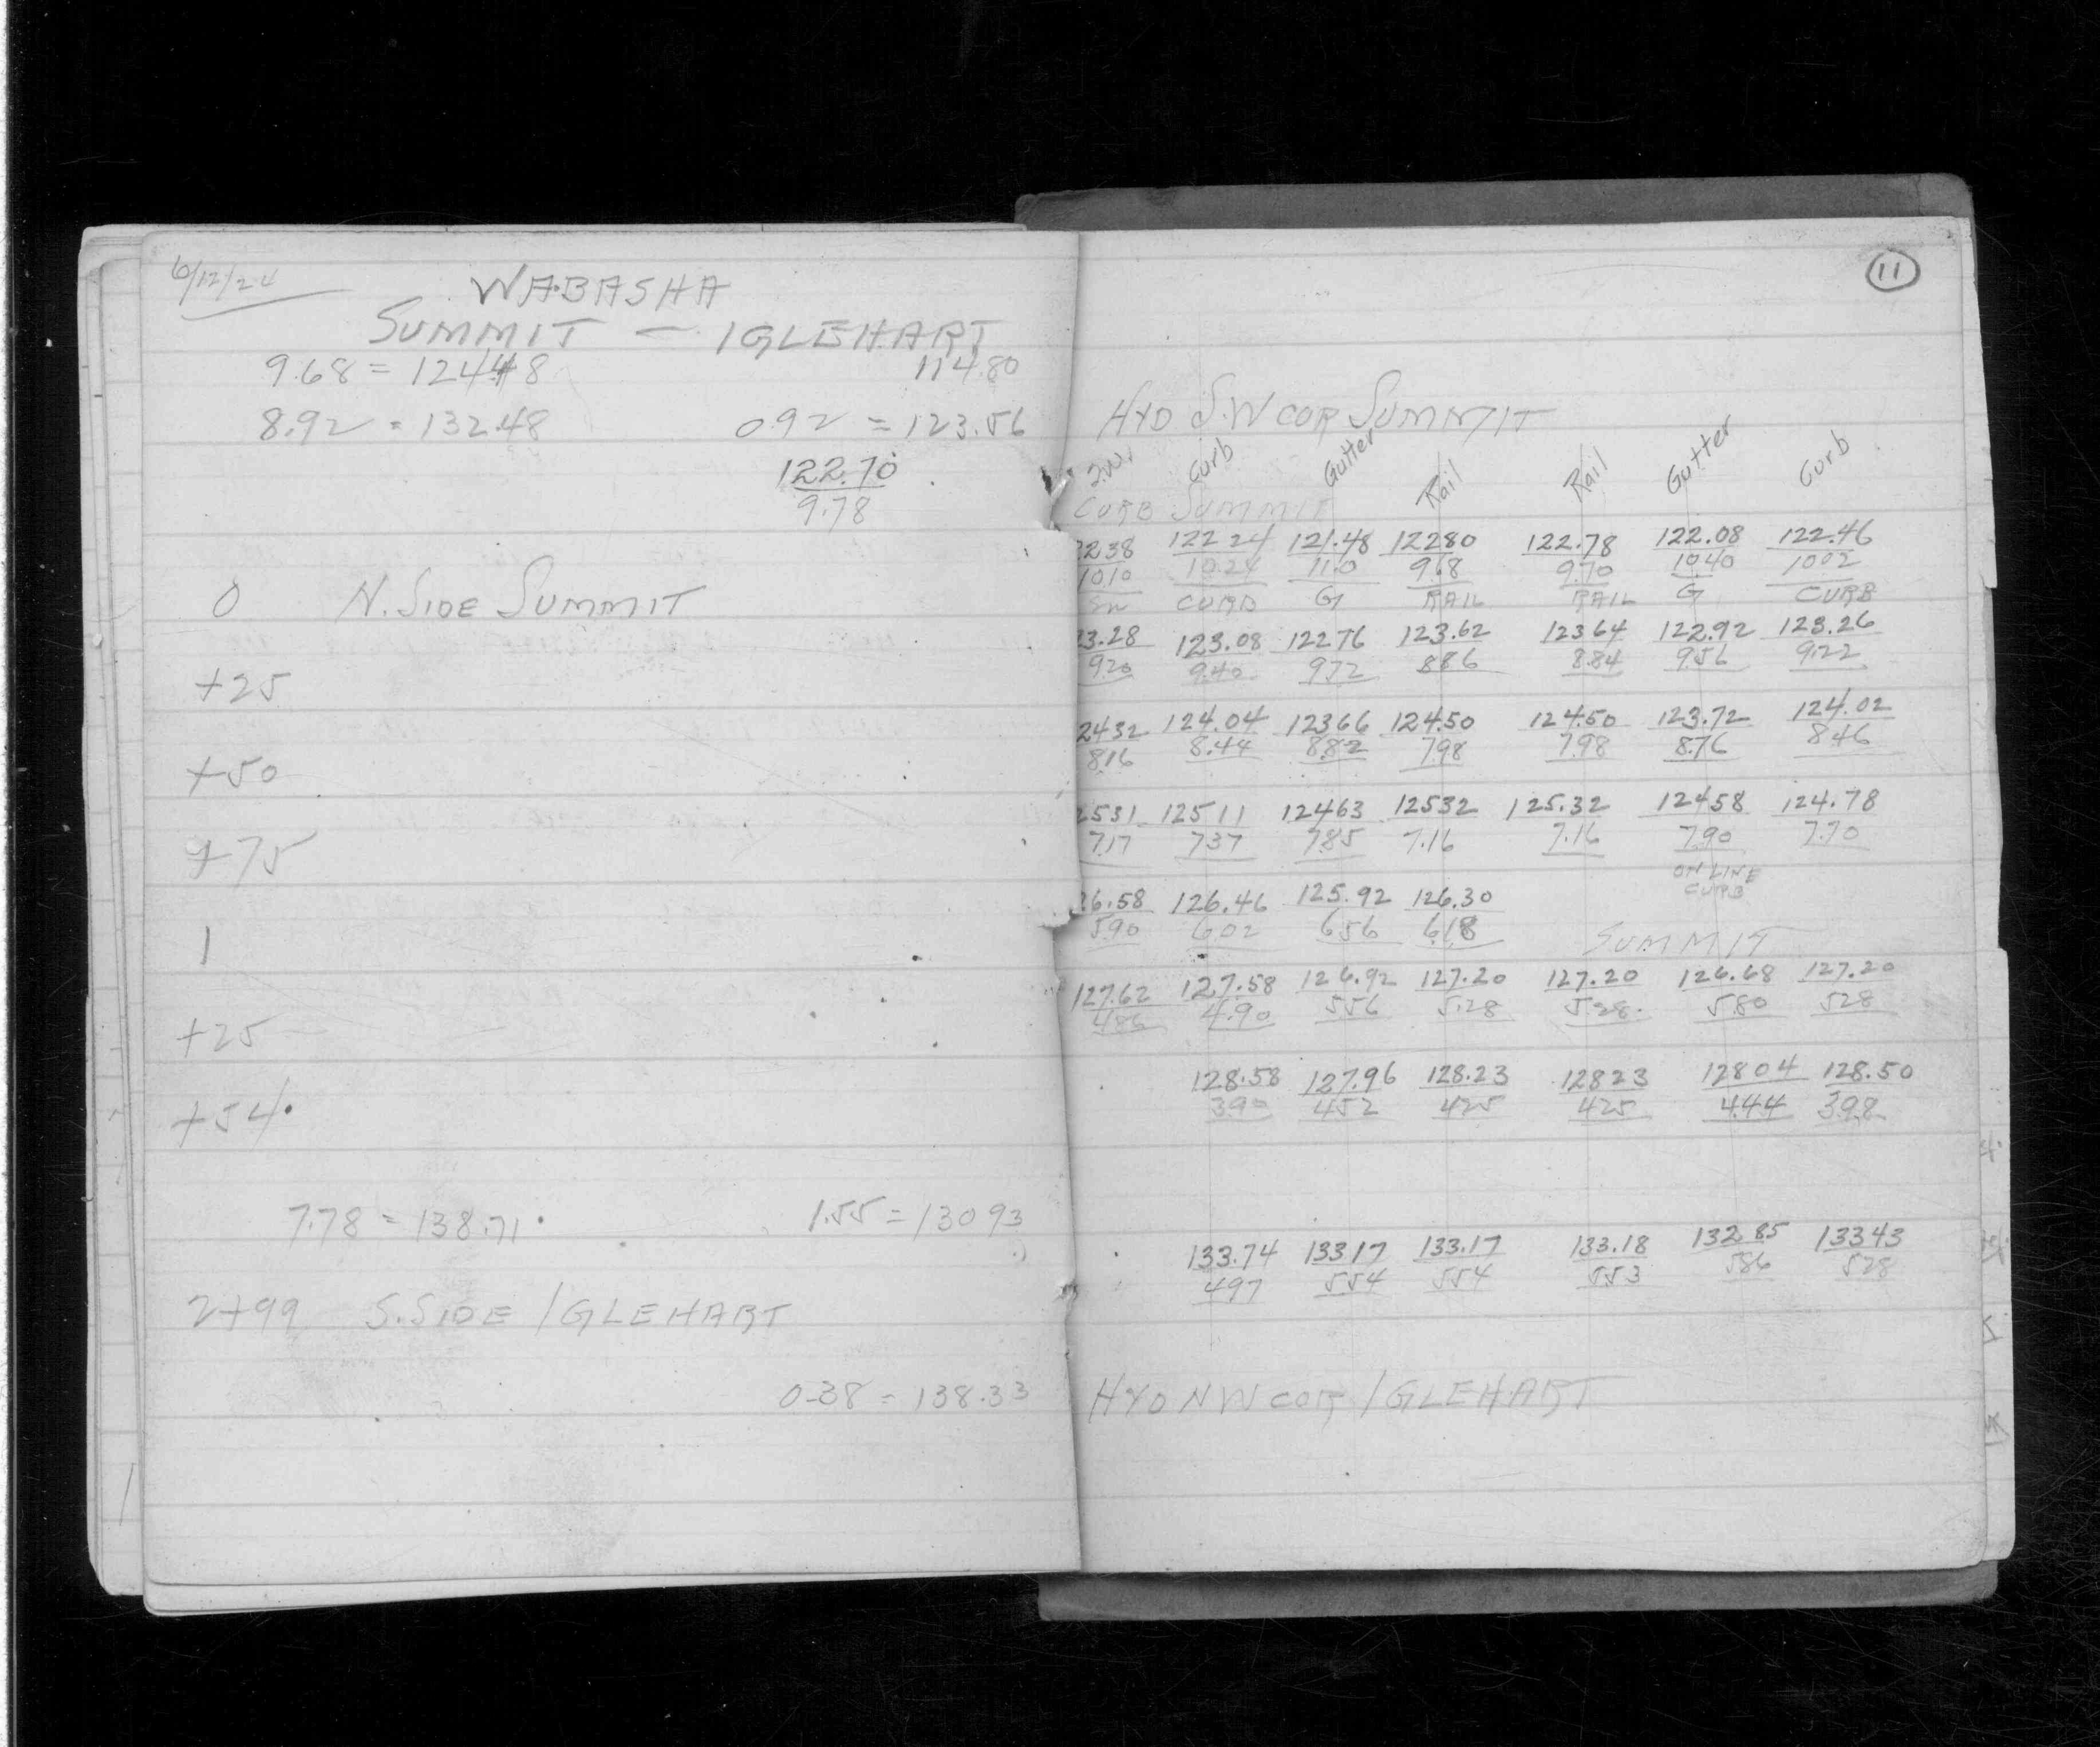 6/12/24
WABASHA
SUMMIT - IGLEHART
9.68 = 124.48 114.80
8.92 = 132.48 0.92 = 123.56
122.70
9.78
0 N. SIDE SUMMIT
+25
+50
+75
1
+25
+54
7.78 = 138.71 1.55 = 130 93
2+99 S. SIDE IGLEHART
0-38 = 138.33
11
HYD S.W COR SUMMIT
S.W. Curb Gutter Rail Rail Gutter Curb
CURB SUMMIT
2238 122 24 121.48 12280 122.78 122.08 122.46
1010 10.24 11.0 9.68 9.70 1040 1002
SW CURB G RAIL RAIL G CURB
3.28 123.08 122 76 123.62 123 64 122.92 123.26
920 9.40 972 886 8.84 956 9.22
2432 124.04 12366 124.50 124.50 123.72 124.02
816 8.44 882 798 798 8.76 846
2531 125 11 12463 12532 125.32 12458 124.78
717 737 785 7.16 7.16 7.90 7.70
ON LINE
CURB
26.58 126.46 125.92 126.30
590 602 656 618
SUMMIT
127.62 127.58 126.92 127.20 127.20 126.68 127.20
486 4.90 556 5.28 5.28 580 528
128.58 127.96 128.23 12823 128 04 128.50
390 452 425 425 444 398
133.74 133 17 133.17 133.18 132 85 13343
497 554 554 553 586 528
HYD NW COR IGLEHART